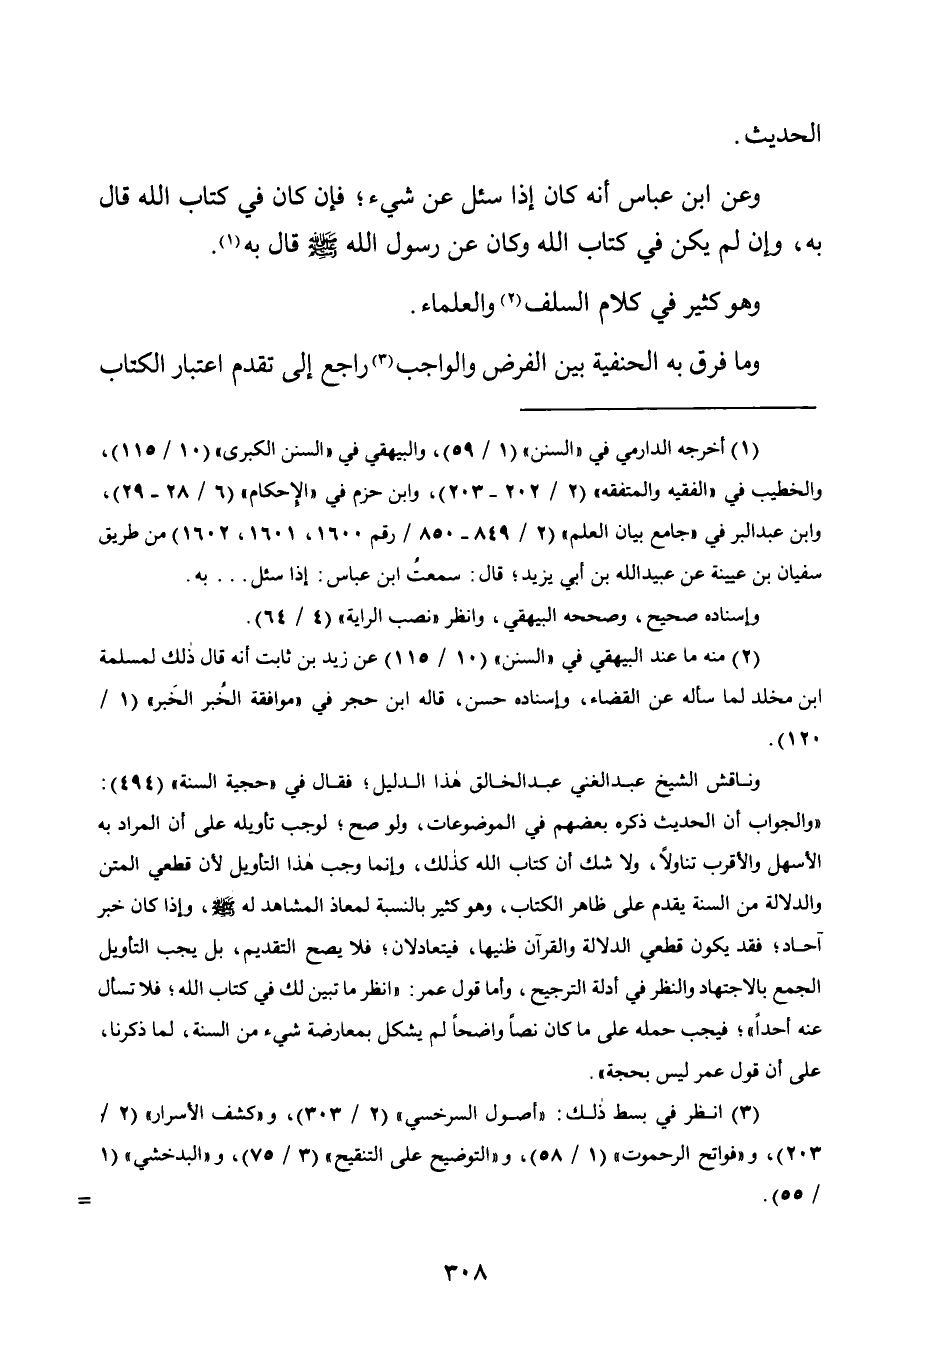 الحديث.
وعن ابن عباس أنه كان إذا سئل عن شيء؛ فإن كان في كتاب الله قال
به، وإن لم يكن في كتاب الله وكان عن رسول الله ﷺ قال به(١).
وهو كثير في كلام السلف(٢) والعلماء.
وما فرق به الحنفية بين الفرض والواجب(٣) راجع إلى تقدم اعتبار الكتاب
(١) أخرجه الدارمي في «السنن» (١ / ٥٩)، والبيهقي في «السنن الكبرى» (١٠ / ١١٥)،
والخطيب في «الفقيه والمتفقه» (٢ / ٢٠٢ - ٢٠٣)، وابن حزم في «الإحكام» (٦ / ٢٨ - ٢٩)،
وابن عبدالبر في «جامع بيان العلم» (٢ / ٨٤٩ - ٨٥٠ / رقم ١٦٠٠، ١٦٠١، ١٦٠٢) من طريق
سفيان بن عيينة عن عبيدالله بن أبي يزيد؛ قال: سمعتُ ابن عباس: إذا سئل... به.
وإسناده صحيح، وصححه البيهقي، وانظر «نصب الراية» (٤ / ٦٤).
(٢) منه ما عند البيهقي في «السنن» (١٠ / ١١٥) عن زيد بن ثابت أنه قال ذلك لمسلمة
ابن مخلد لما سأله عن القضاء، وإسناده حسن، قاله ابن حجر في «موافقة الخُبر الخَبر» (١ /
١٢٠).
وناقش الشيخ عبدالغني عبدالخالق هذا الدليل؛ فقال في «حجية السنة» (٤٩٤):
«والجواب أن الحديث ذكره بعضهم في الموضوعات، ولو صح؛ لوجب تأويله على أن المراد به
الأسهل والأقرب تناولاً، ولا شك أن كتاب الله كذلك، وإنما وجب هذا التأويل لأن قطعي المتن
والدلالة من السنة يقدم على ظاهر الكتاب، وهو كثير بالنسبة لمعاذ المشاهد له ﷺ، وإذا كان خبر
آحاد؛ فقد يكون قطعي الدلالة والقرآن ظنيها، فيتعادلان؛ فلا يصح التقديم، بل يجب التأويل
الجمع بالاجتهاد والنظر في أدلة الترجيح، وأما قول عمر: «انظر ما تبين لك في كتاب الله؛ فلا تسأل
عنه أحداً»؛ فيجب حمله على ما كان نصاً واضحاً لم يشكل بمعارضة شيء من السنة، لما ذكرنا،
على أن قول عمر ليس بحجة».
(٣) انظر في بسط ذلك: «أصول السرخسي» (٢ / ٣٠٣)، و«كشف الأسرار» (٢ /
٢٠٣)، و«فواتح الرحموت» (١ / ٥٨)، و«التوضيح على التنقيح» (٣ / ٧٥)، و«البدخشي» (١
/ ٥٥).
=
٣٠٨